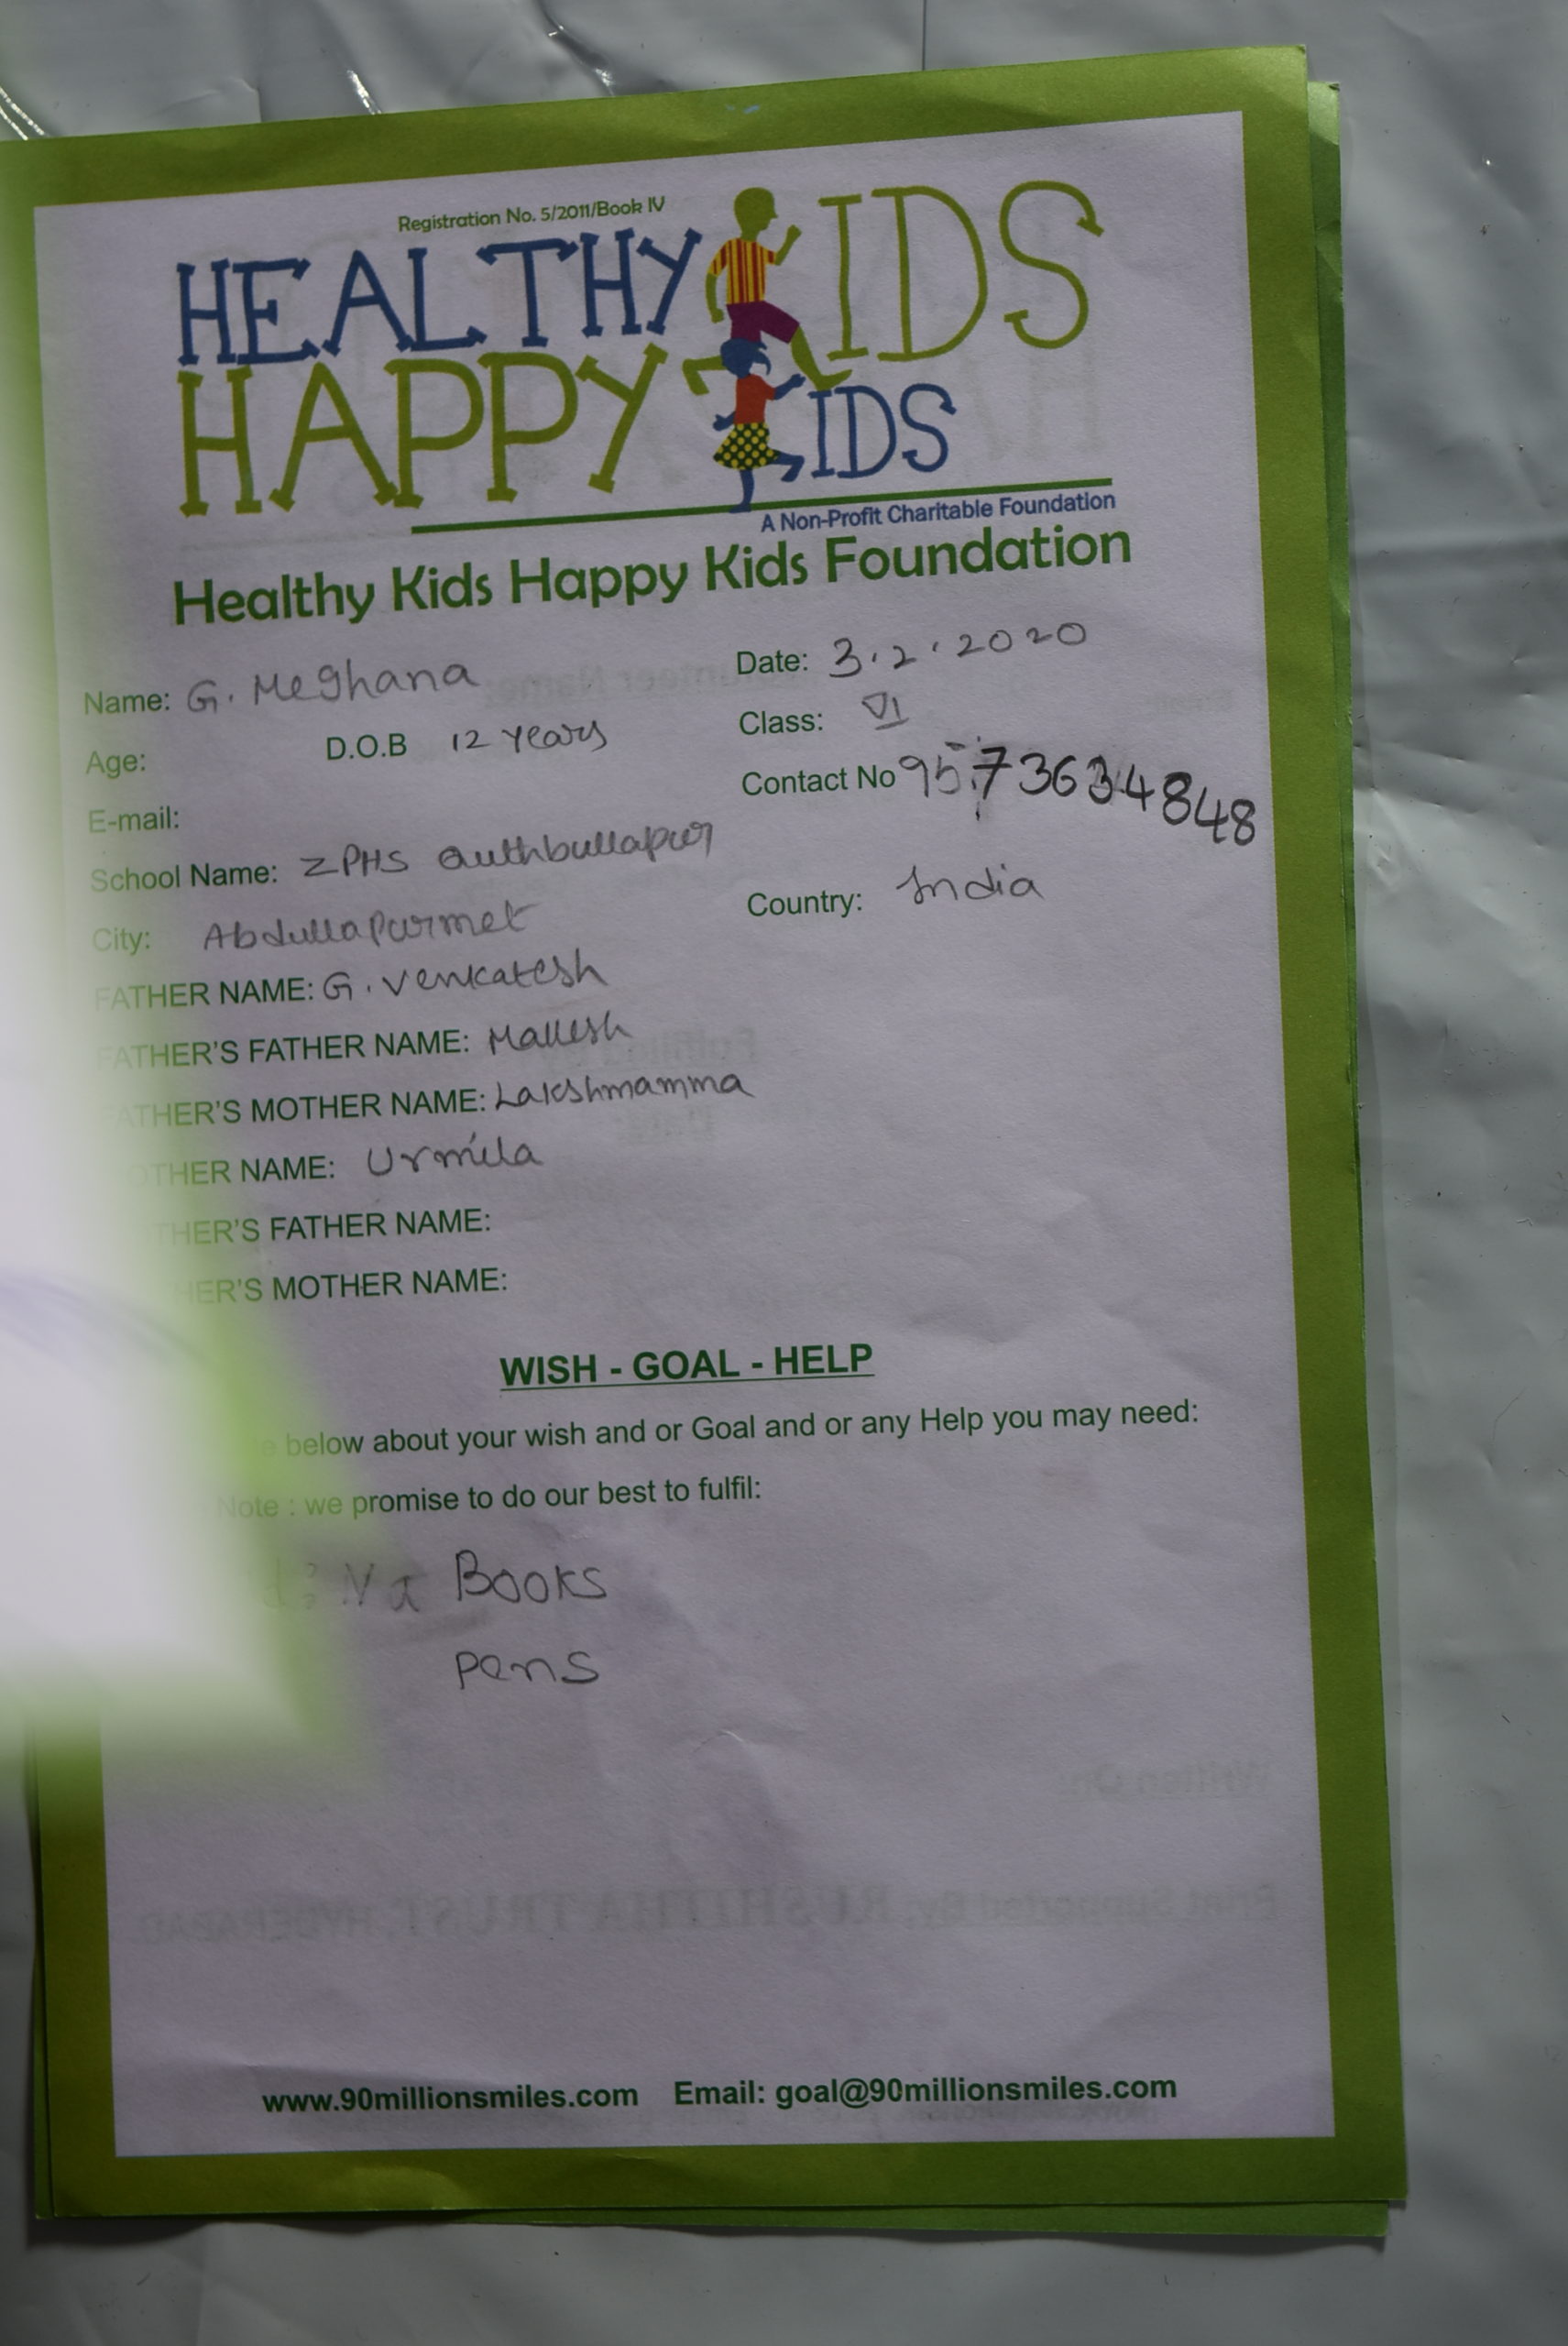 Registration No. 5/2011/Book IV
HEALTHY KIDS
HAPPY KIDS
A Non-Profit Charitable Foundation
Healthy Kids Happy Kids Foundation
Name: G. Meghana Date: 3.2.2020
Age: D.O.B 12 years Class: VI
E-mail: Contact No 9573634848
School Name: ZPHS Quthbullapur
City: Abdullapurmet Country: India
FATHER NAME: G. Venkatesh
FATHER'S FATHER NAME: Mallesh
FATHER'S MOTHER NAME: Lakshmamma
MOTHER NAME: Urmila
THER'S FATHER NAME:
HER'S MOTHER NAME:
WISH - GOAL - HELP
below about your wish and or Goal and or any Help you may need:
Note : we promise to do our best to fulfil:
Books
pens
www.90millionsmiles.com Email: goal@90millionsmiles.com